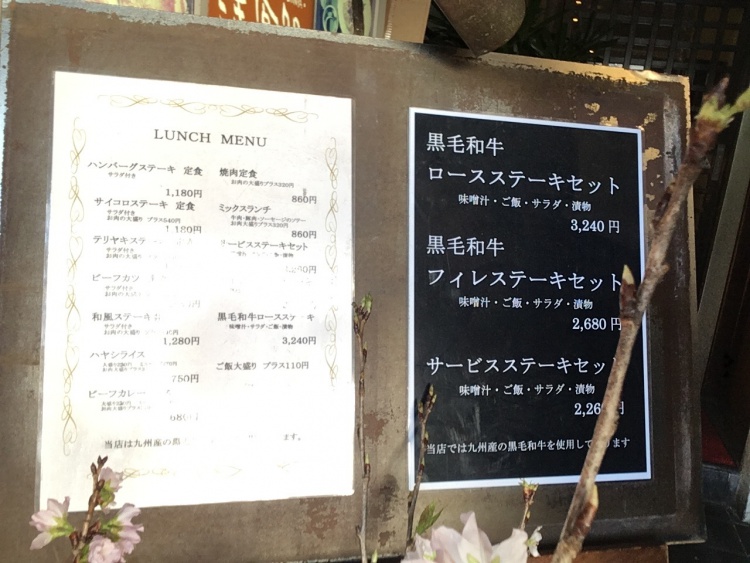 LUNCH MENU
ハンバーグステーキ 定食
サラダ付き
1,180円
サイコロステーキ 定食
サラダ付き
お肉の大盛り プラス540円
1,180円
テリヤキステ
サラダ付き
お肉の大盛り
ビーフカツ
和風ステーキ
サラダ付き
お肉の大盛り
1,280円
ハヤシライス
750円
ビーフカレー
680円
焼肉定食
お肉の大盛りプラス320円
860円
ミックスランチ
牛肉・豚肉・ソーセージのソテー
お肉大盛りプラス320円
860円
サービスステーキセット
黒毛和牛ロースステーキ
味噌汁・サラダ・ご飯・漬物
3,240円
ご飯大盛り プラス110円
当店は九州産の黒 ます。
黒毛和牛
ロースステーキセット
味噌汁・ご飯・サラダ・漬物
3,240円
黒毛和牛
フィレステーキセット
味噌汁・ご飯・サラダ・漬物
2,680円
サービスステーキセット
味噌汁・ご飯・サラダ・漬物
2,26 円
当店では九州産の黒毛和牛を使用して ります